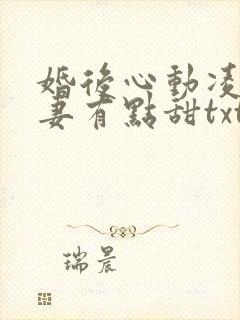 婚後心動凌
妻有點甜txt
瑞晨